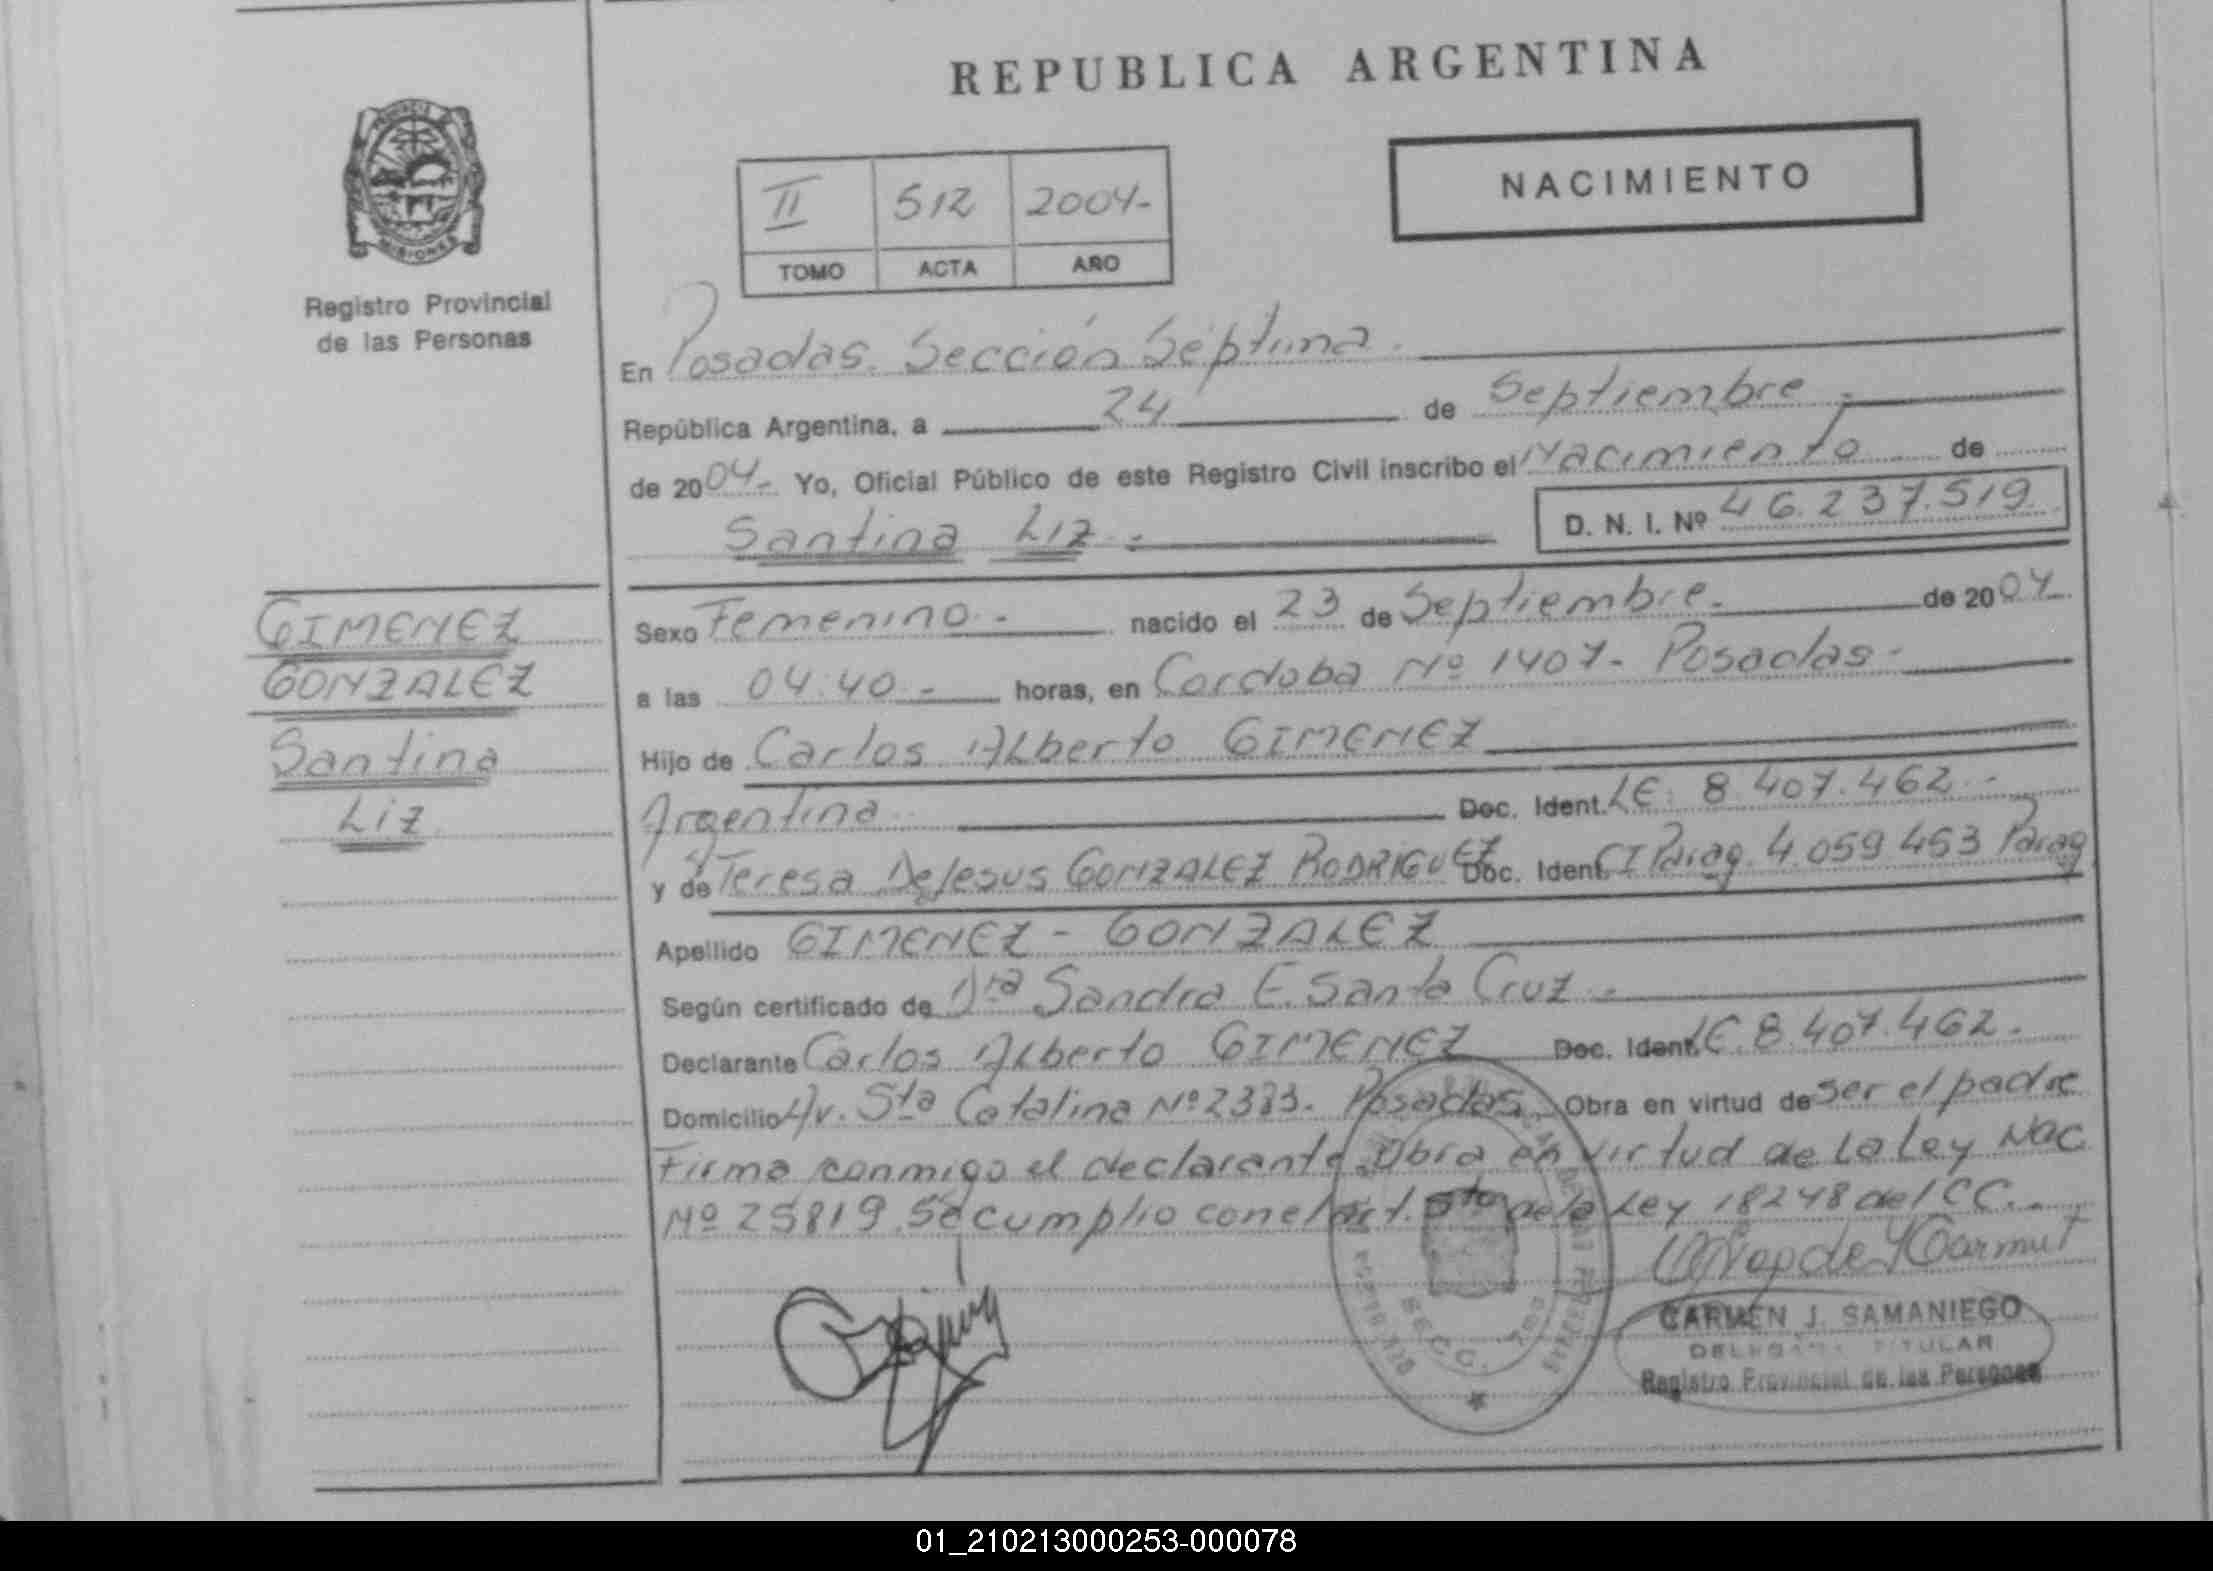 REPUBLICA ARGENTINA
PROVINCIA
MISIONES
Registro Provincial
de las Personas
II 512 2004-
TOMO ACTA AÑO
NACIMIENTO
En Posadas. Sección Séptima.
República Argentina, a 24 de Septiembre.
de 2004.- Yo, Oficial Público de este Registro Civil inscribo el Nacimiento de
Santina Liz.- D. N. I. Nº 46.237.519
GIMENEZ
GONZALEZ
Santina
Liz
Sexo Femenino.- nacido el 23 de Septiembre.- de 2004.
a las 04:40.- horas, en Cordoba Nº 1407- Posadas-
Hijo de Carlos Alberto GIMENEZ
Argentina. Doc. Ident. LE. 8.407.462.-
y de Teresa DeJesus GONZALEZ RODRIGUEZ Doc. Ident. CI Parag. 4.059.453 Parag
Apellido GIMENEZ - GONZALEZ
Según certificado de Dra Sandra E. Santa Cruz.-
Declarante Carlos Alberto GIMENEZ Doc. Ident. LE. 8.407.462.
Domicilio Av. Sta Catalina Nº 2383. Posadas. Obra en virtud de ser el padre
Firma conmigo el declarante. Obra en virtud de la Ley Nac
Nº 25819. Se cumplio con el art. 5to de la Ley 18248 del CC.-
SECC. 7ma
CARMEN J. SAMANIEGO
DELEGADA TITULAR
Registro Provincial de las Personas
01_210213000253-000078